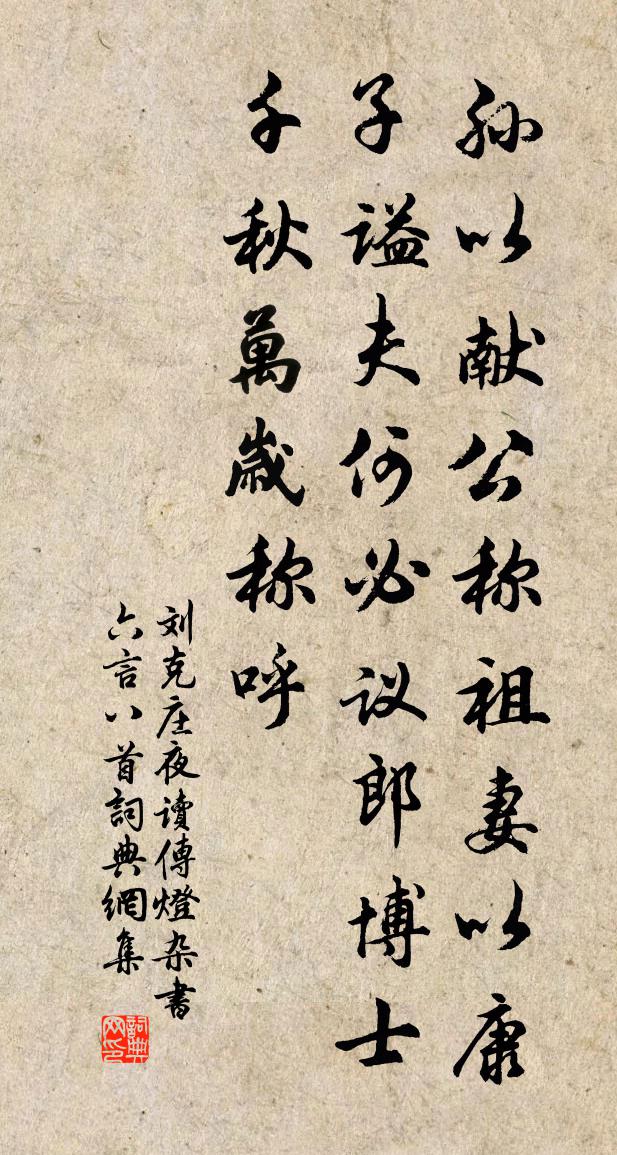 孙以献公称祖妻以康
子谥夫何必议郎博士
千秋萬歳称呼
刘克庄夜讀傳燈杂書
六言八首詞典網集
詞典网印